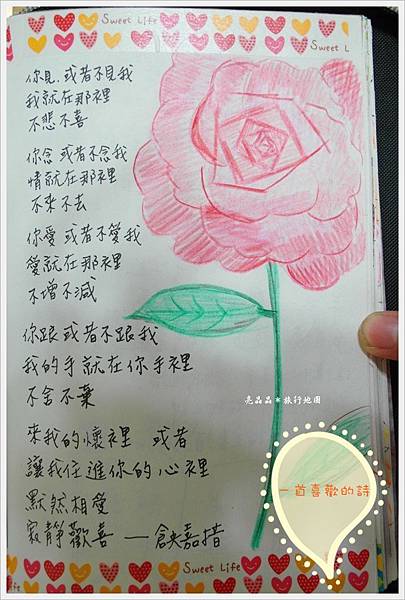 Sweet Life
Sweet Life
你見,或者不見我
我就在那裡
不悲不喜
你念 或者不念我
情就在那裡
不來不去
你愛 或者不愛我
愛就在那裡
不增不減
你跟或者不跟我
我的手就在你手裡
不舍不棄
來我的懷裡 或者
讓我住進你的心裡
默然相愛
寂靜歡喜 —倉央嘉措
亮晶晶*旅行地圖
一首喜歡的詩
Sweet Life
Sweet Life